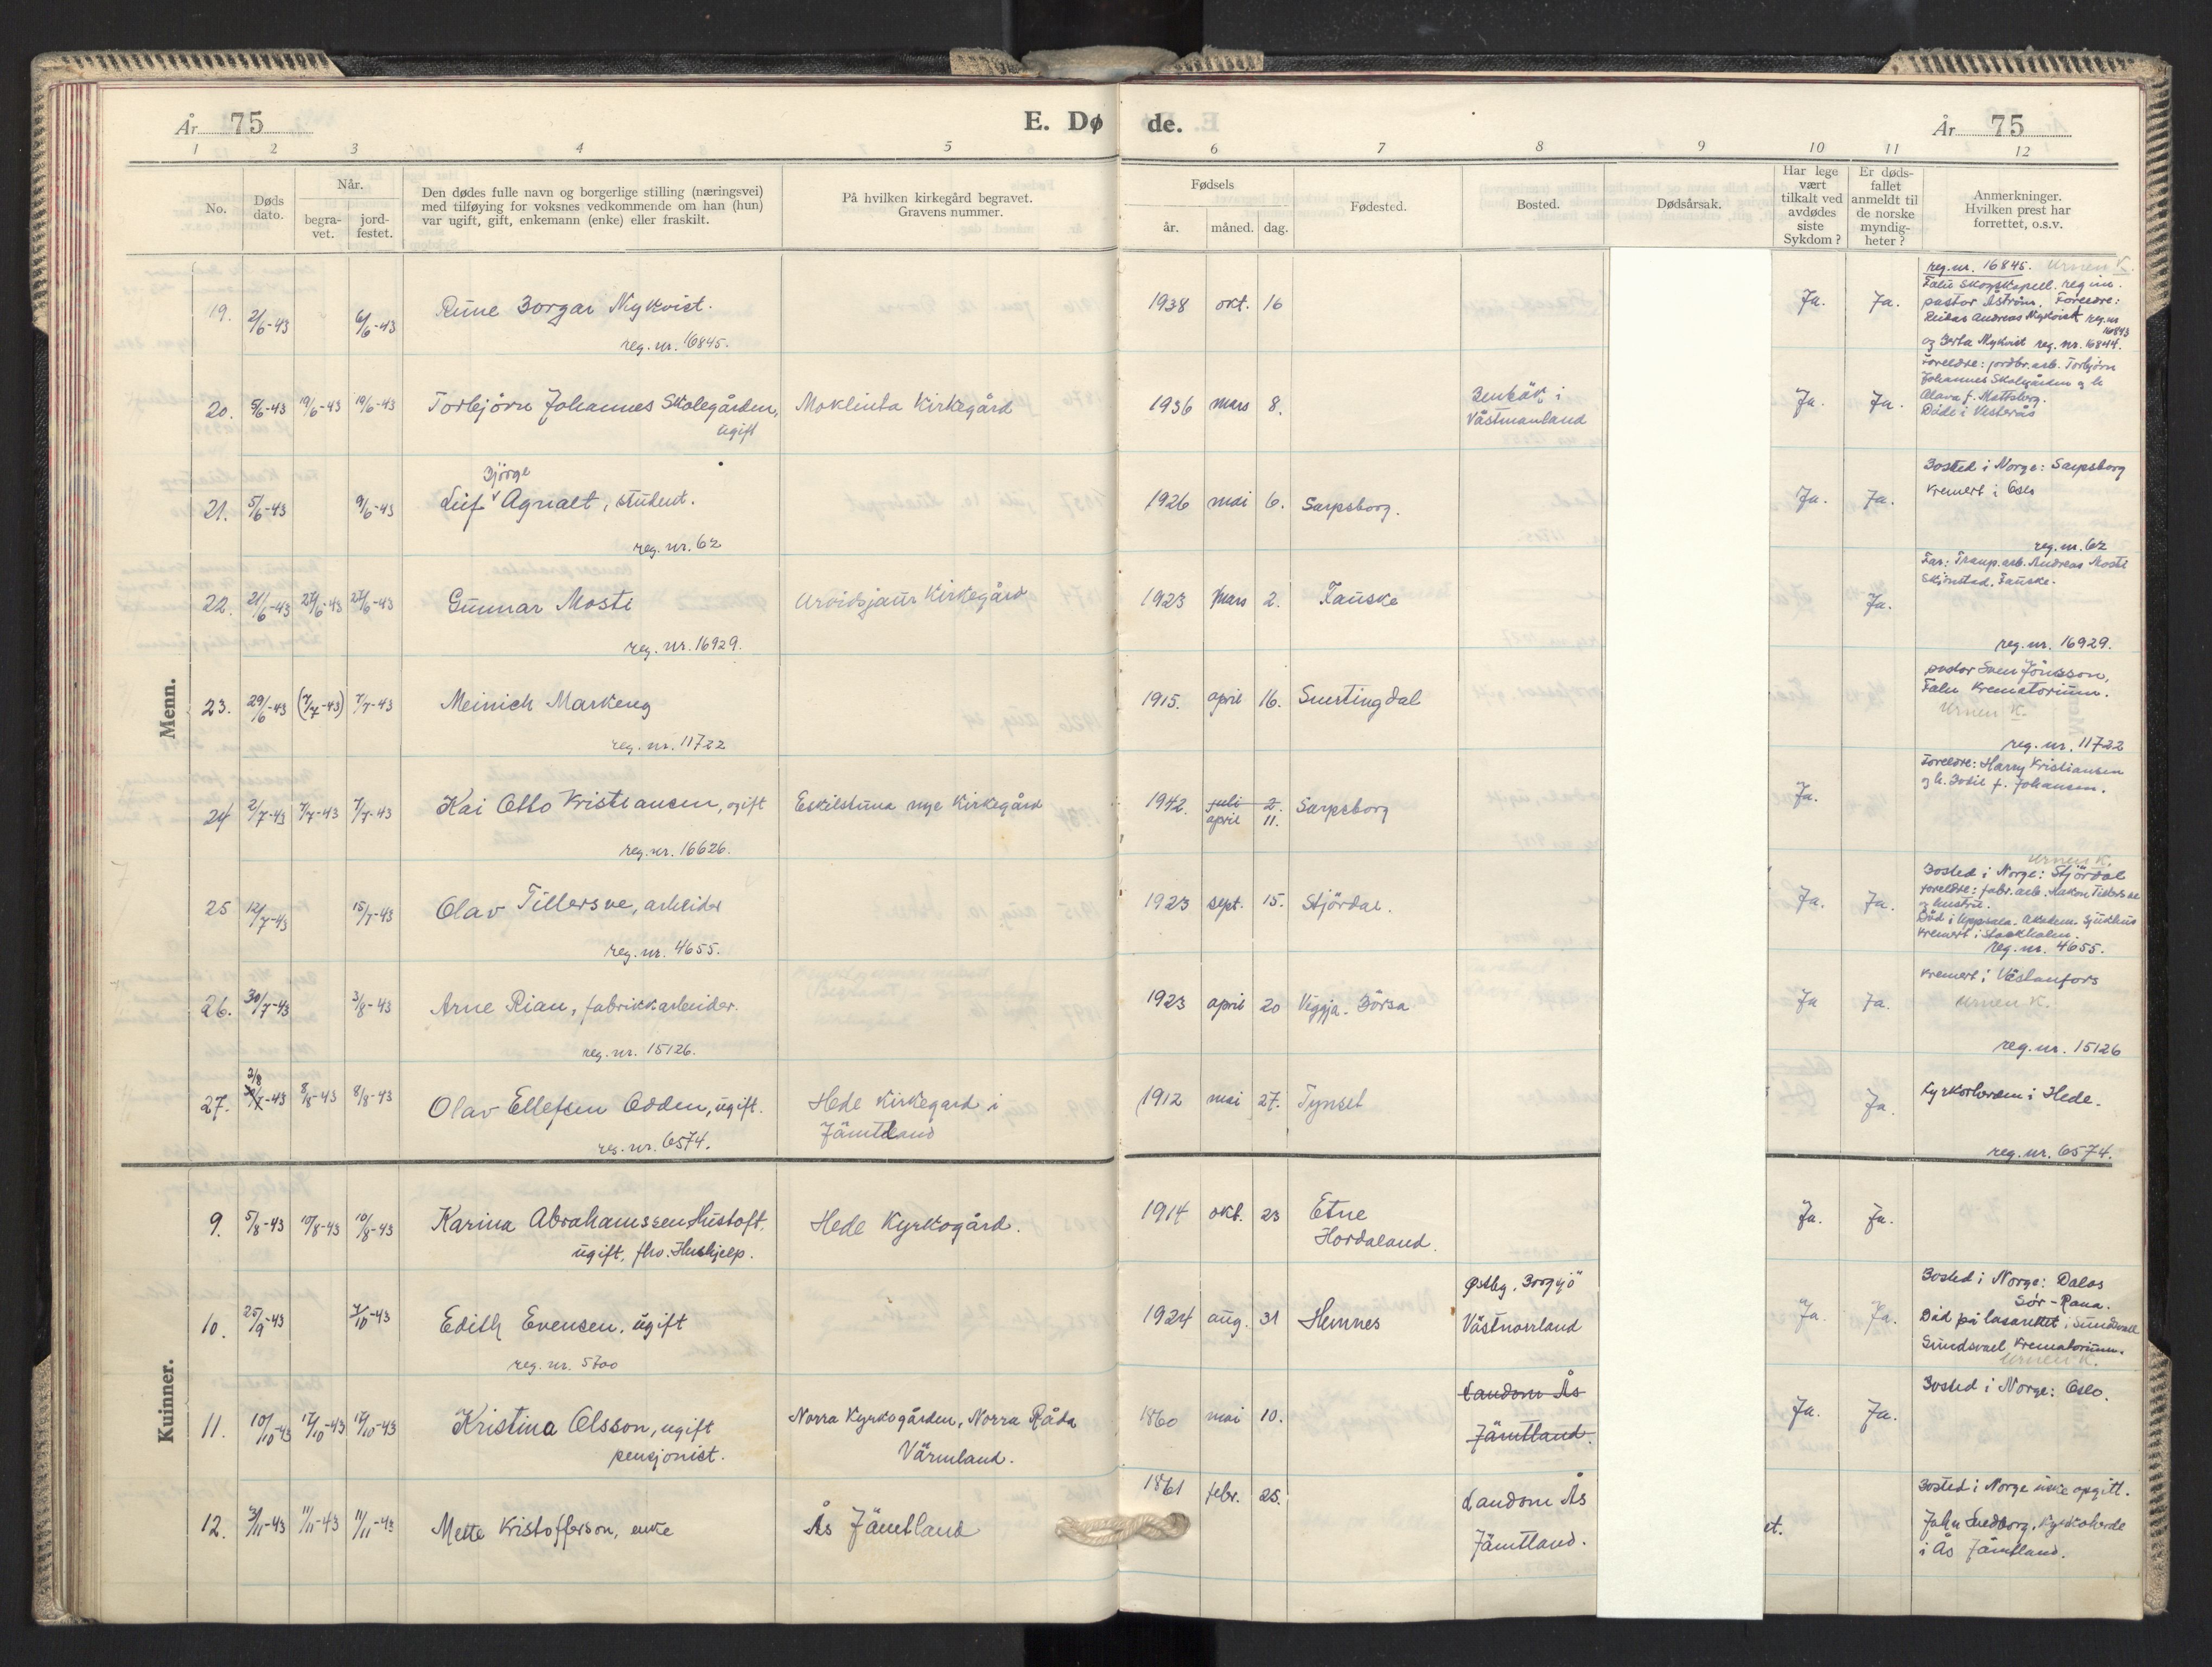 År 75
E. Dø de.
År 75
1 2 3 4 5 6 7 8 9 10 11 12
No.
Døds dato.
Når.
begra-vet.
jord-festet.
Den dødes fulle navn og borgerlige stilling (næringsvei)
med tilføying for voksnes vedkommende om han (hun)
var ugift, gift, enkemann (enke) eller fraskilt.
På hvilken kirkegård begravet.
Gravens nummer.
Fødsels
år. måned. dag.
Fødested.
Bosted.
Dødsårsak.
Har lege vært tilkalt ved avdødes siste Sykdom?
Er døds-fallet anmeldt til de norske myndig-heter?
Anmerkninger.
Hvilken prest har
forrettet, o.s.v.
Menn.
19. 2/6-43 6/6-43 Rune Borgar Nykvist. 1938 okt. 16 Ja. Ja.
reg. nr. 16845.
reg. nr. 16845. Urnen K.
Falu Skogskapell. reg in.
pastor Åström. Foreldre:
Andreas Nykvist reg. nr
16843
og Berta Nykvist reg. nr. 16844.
20. 5/6-43 19/6-43 19/6-43 Torbjörn Johannes Skolegården, Moklinta Kirkegård 1936 mars 8. Ja. Ja.
ugift
i
Västmanland
Foreldre: jordbr.arb. Torbjörn
Johannes Skolegården og h.
f. Mattsberg.
Döde i Vesterås
21. 5/6-43 9/6-43 Leif Bjørge Agnalt, student. 1926 mai 6. Sarpsborg. Ja. Ja.
reg. nr. 62
Bosted i Norge: Sarpsborg
Kremert i Oslo
reg. nr. 62
22. 21/6-43 27/6-43 27/6-43 Gunnar Mosti Arvidsjaur Kirkegård 1923 Mars 2. Fauske Ja.
reg. nr. 16929.
Far: arb. Andreas Mosti
Fauske.
reg. nr. 16929.
23. 29/6-43 (7/7-43) 7/7-43 Meinich Markeng 1915. april 16. Snertingdal
reg. nr. 11722
pastor Sven Jönsson,
Falu Krematorium.
Urnen K.
reg. nr. 11722
24 2/7-43 7/7-43 7/7-43 Kai Otto Kristiansen, ugift Eskilstuna nye Kirkegård 1942. juli 2. Sarpsborg Ja.
april 11.
reg. nr. 16626.
Foreldre: Harry Kristiansen
og h. Bodil f. Johansen.
25 12/7-43 15/7-43 Olav Tillersve, arbeider 1923 sept. 15. Stjördal. Ja. Ja.
reg. nr. 4655.
Urnen K.
Bosted i Norge: Stjördal
Foreldre: fabr. arb. Håkon Tillersve
og hustru.
Död i Uppsala. Akadem. Sjukhus
Kremert i Stockholm.
reg. nr. 4655.
26. 30/7-43 3/8-43 Arne Rian, fabrikkarbeider. 1923 april 20 Viggja. Börsa Ja Ja.
reg. nr. 15126.
Kremert i Västanfors
Urnen K.
reg. nr. 15126
27. 3/8 -43 8/8-43 8/8-43 Olav Ellefsen Odden, ugift. Hede Kirkegard i 1912 mai 27. Tynset Ja.
reg. nr. 6574.
Jämtland
Kyrkoherden i Hede.
reg. nr. 6574.
Kvinner.
9. 5/8-43 10/8-43 10/8-43 Karina Abrahamssen Hustoft. Hede Kyrkogård. 1914 okt. 23 Etne Ja. Ja.
ugift, fhv. Hushjelp.
Hordaland.
10. 25/9-43 7/10-43 Edith Evensen, ugift 1924 aug. 31 Hemnes Ja. Ja.
reg. nr. 5700
Østby, Borgsjö
Västnorrland
Bosted i Norge: Dalos
Sør-Rana.
Död på lasarettet i Sundsvall
Sundsvall Krematorium.
Urnen K.
11. 10/10-43 17/10-43 17/10-43 Kristina Olsson, ugift Norra Kyrkogården, Norra Råda 1860 mai 10. Ja. Ja.
pensjonist.
Värmland.
Landom Ås
Jämtland.
Bosted i Norge: Oslo.
12. 3/11-43 11/11-43 11/11-43 Mette Kristofferson, enke Ås Jämtland 1861 febr. 25. Landom Ås
Jämtland.
et.
Bosted i Norge ikke opgitt.
John Kyrkoherde
i Ås Jämtland.